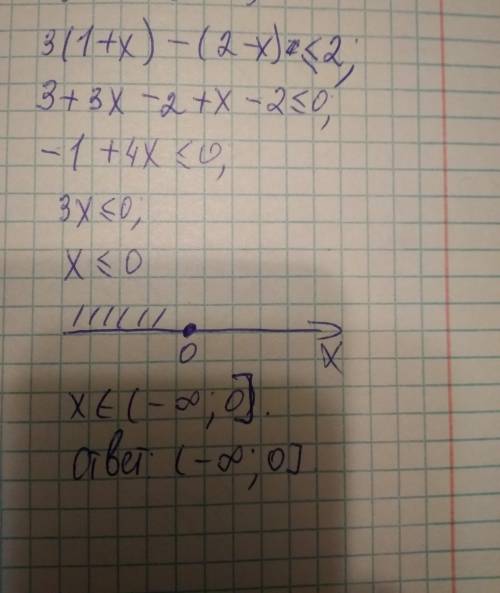 3(1+x) - (2-x) ≤ 2;
3+3x-2+x-2≤0;
-1+4x≤0;
3x≤0;
x≤0
0 x
x∈(-∞;0].
ответ: (-∞;0]